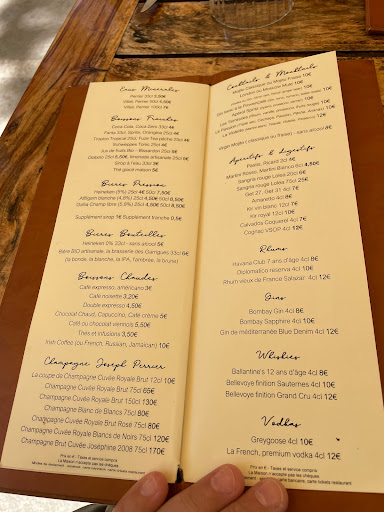 Eaux Minérales
Perrier 33cl 3,50€
Vittel, Perrier 50cl
Vittel, Perrier 100cl 7€
Boissons Fraiches
Coca Cola, Coca Zéro 33cl 4€
Fanta 33cl, Sprite, Orangina 25cl 4€
Tropico Tropical 20cl, Fuze Tea pêche 25cl 4€
Schweppes Tonic 25cl 4€
Jus de fruits Bio - Bissardon 25cl 5€
limonade artisanale 25cl 5€
Sirop à l'eau 33cl 3€
Thé glacé maison 5€
Bières Pression
Heineken (5%) 25cl 4€ 50cl 7,50€
Affligem blanche (4,8%) 25cl 4,50€ 50cl 8,50€
25cl 4,50€ 50cl 8,50€
Supplément sirop 1€ Supplément tranche 0,5€
Bières Bouteilles
Heineken 0% 33cl - sans alcool 5€
Bière BIO artisanale, la brasserie des Garrigues 33cl 6€
(la bonde, la blanche, la IPA, l'ambrée, la brune)
Boissons Chaudes
Café expresso, américano 3€
Café noisette 3,20€
Double expresso 4,50€
Chocolat Chaud, Capuccino, Café crème 5€
Café ou chocolat viennois 5,50€
Thés et infusions 3,50€
Irish Coffee (ou French, Russian, Jamaican) 10€
Champagne Joseph Perrier
La coupe de Champagne Cuvée Royale Brut 12cl 10€
Champagne Cuvée Royale Brut 75cl 65€
Champagne Cuvée Royale Brut 150cl 130€
Champagne Blanc de Blancs 75cl 80€
Champagne Cuvée Royale Brut Rosé 75cl 80€
Champagne Cuvée Royale Blancs de Noirs 75cl 120€
Champagne Brut Cuvée Joséphine 2008 75cl 170€
Prix en € - Taxes et service compris
La Maison n'accepte pas les chèques
Cocktails & Mocktails
Mojito Classique ou Mojito Fraise 10€
Londres ou Moscow Mule 10€
Aperol Spritz
Virgin Mojito ( classique ou fraise) - sans alcool 8€
Apéritifs & digestifs
Pastis, Ricard 2cl 4€
Martini Rosso, Martini Bianco 6cl 4,50€
Sangria rouge Lolea 20cl 6€
Sangria rouge Lolea 75cl 25€
Get 27, Get 31 4cl 7€
Amaretto 4cl 8€
Kir vin blanc 12cl 7€
Kir royal 12cl 10€
Calvados Coquerel 4cl 7€
Cognac VSOP 4cl 12€
Rhums
Havana Club 7 ans d'âge 4cl 8€
Diplomatico reserva 4cl 10€
Rhum vieux de France Salazar 4cl 12€
Gins
Bombay Gin 4cl 8€
Bombay Sapphire 4cl 10€
Gin de méditerranée Blue Denim 4cl 12€
Whiskies
Ballantine's 12 ans d'âge 4cl 8€
Bellevoye finition Sauternes 4cl 10€
Bellevoye finition Grand Cru 4cl 12€
Vodkas
Greygoose 4cl 10€
La French, premium vodka 4cl 12€
Prix en € - Taxes et service compris
La Maison n'accepte pas les chèques